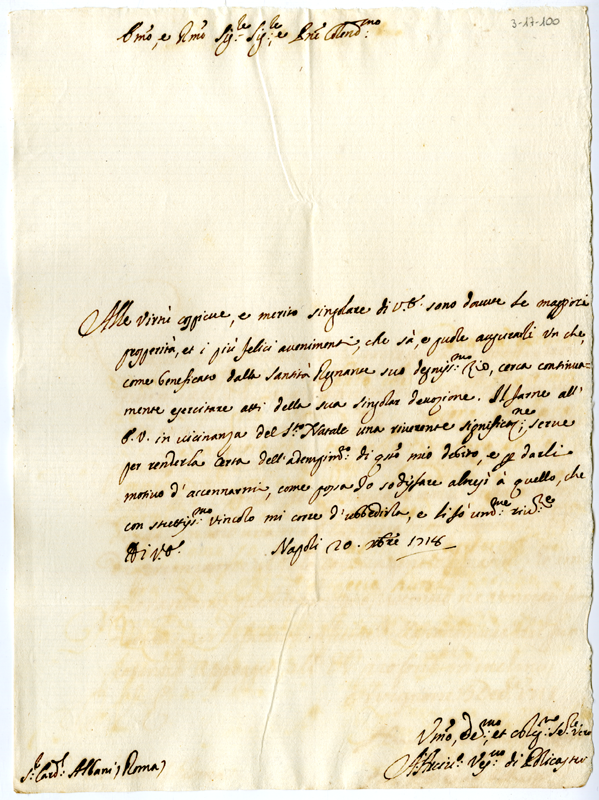 3-17-100
Emo, e Rmo Sig:re Sig:re, e Pne Colend:mo
Alle Virtù cospicue, e merito singolare di V.E. sono dovute le maggiori
prosperità, et i più felici avvenimenti, che sà, e puole augurarli un che,
come beneficato dalla Santità Regnante suo degniss:mo Zio, cerca continua-
mente esercitare atti della sua singolar devozione. Il farne all'
E.V. in vicinanza del S.to Natale una riverente significaz:ne, serve
per renderla certa dell'adempim:to di questo mio debito, e per darli
motivo d'accennarmi, come possa Io sodisfare altresì à quello, che
con strettiss:mo vincolo mi corre d'ubbedirla, e li fò um:me river:ze
Di V.E. Napoli 20 Xbre 1718
Umo, De:mo, et oblig:mo Se:re vero
Vesc:vo di Policastro
S:r Card:l Albani, Roma